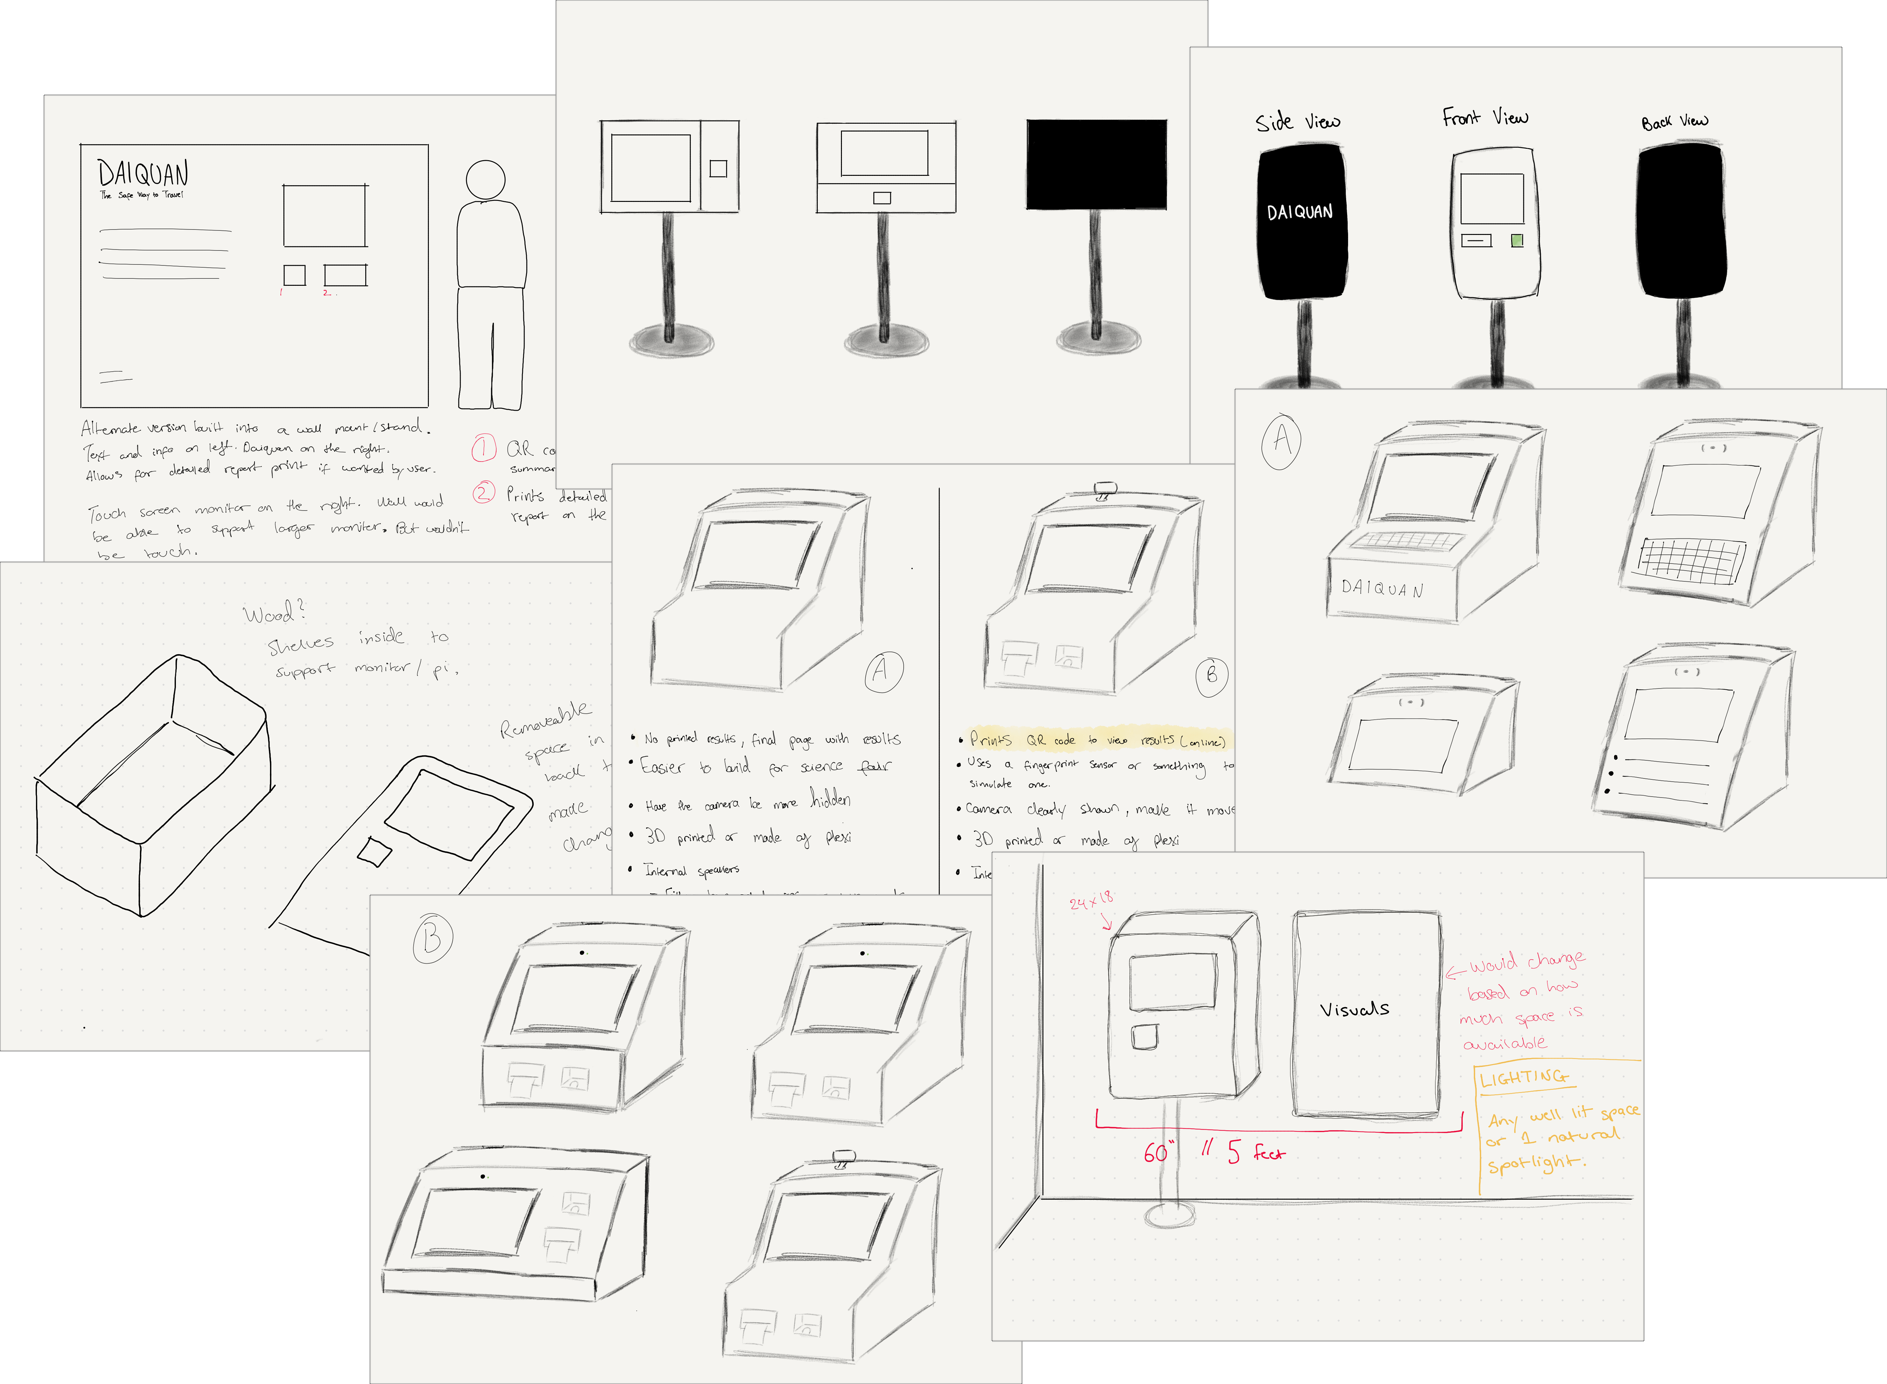 DAIQUAN
The Safe Way to Travel
1
2.
Alternate version built into a wall mount/stand.
Text and info on left. Daiquan on the right.
Allows for detailed report print if wanted by user.
Touch screen monitor on the right. Wall would
be able to support larger monitor. But wouldn't
be touch.
1 QR co
summar
2 Prints detailed
report on the
Side View
Front View
Back View
DAIQUAN
A
DAIQUAN
Wood?
Shelves inside to
support monitor/pi.
Removeable
space in
back
made
chang
A
• No printed results, final page with results
• Easier to build for science fair
• Have the camera be more hidden
• 3D printed or made of plexi
• Internal speakers
B
• Prints QR code to view results (online)
• Uses a fingerprint sensor or something to
simulate one.
• Camera clearly shown, make it move
• 3D printed or made of plexi
• Inte
B
24 x 18
Visuals
← Would change
based on how
much space is
available
60" // 5 feet
LIGHTING
Any well lit space
or 1 natural
spotlight.